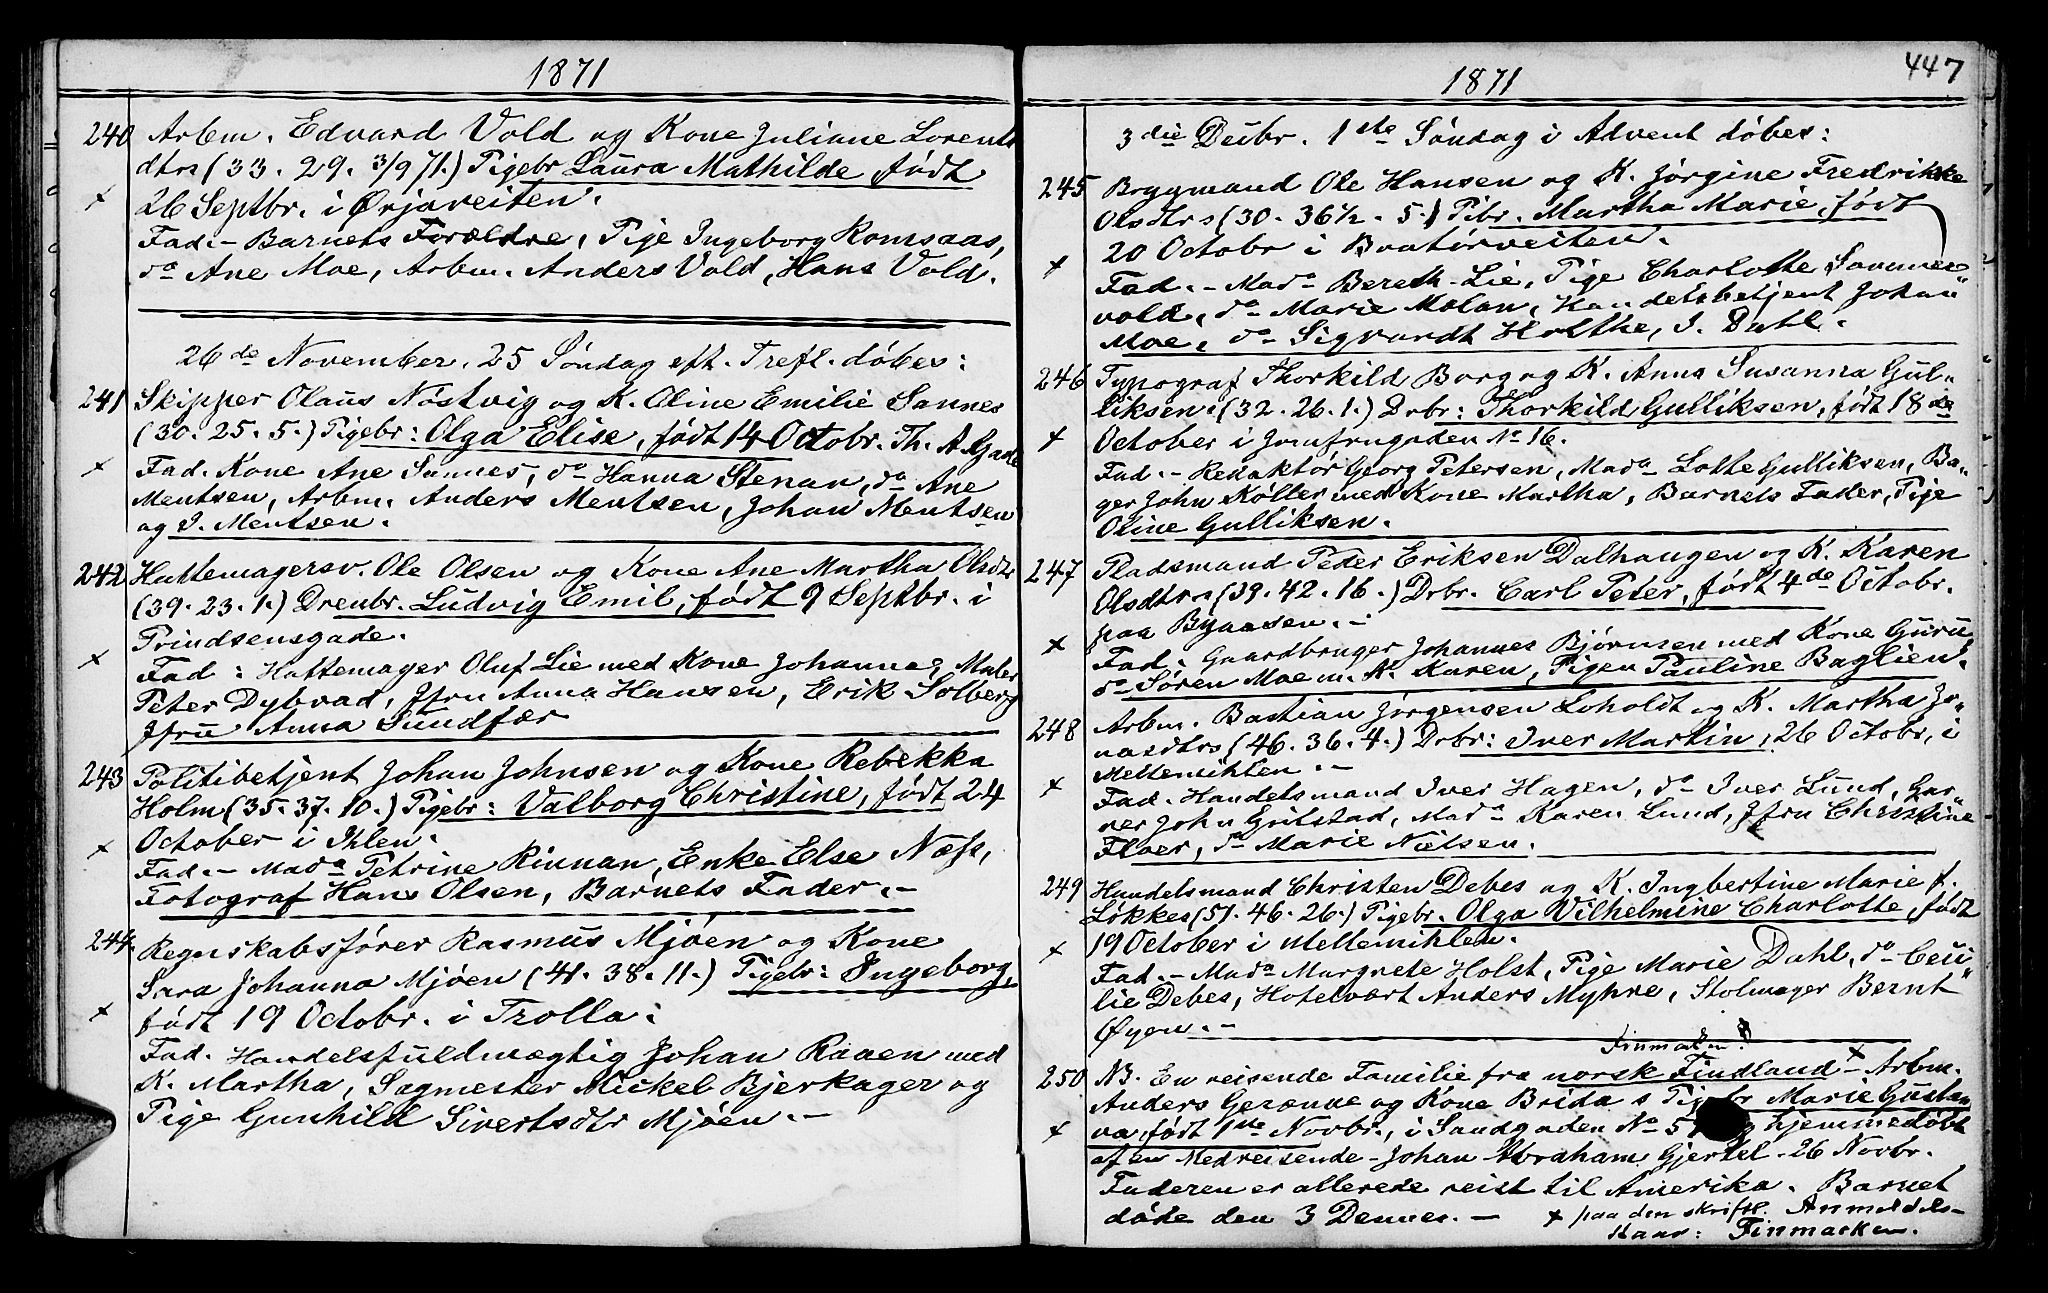 1871
240 Arbm. Edvard Vold og Kone Juliane Lorents
dtrs (33. 29. 3/9 71.) Pigebr Laura Mathilde, født
× 26 Septbr. i Ørjaveiten.
Fad. – Barnets Forældre, Pige Ingeborg Romsaas,
do Ane Moe, Arbm. Anders Vold, Hans Vold.
26de November. 25 Søndag eft. Tref. døbes:
241 Skipper Olaus Nöstvig og K. Oline Emilie Sannes
(30. 25. 5.) Pigebr: Olga Elise, født 14 Octobr. Th. A. Gade
× Fad. Kone Ane Sannes, do Hanna Stenan, do Ane
Mentsen, Arbm. Anders Mentsen, Johan Mentsen
og I. Mentsen.
242 Hattemagersv. Ole Olsen og Kone Ane Martha Olsdtr
(39. 23. 1.) Drenbr. Ludvig Emil, født 9 Septbr. i
Prindsensgade.
× Fad: Hattemager Oluf Lie med Kone Johanna, Maler
Peter Dybvad, Jfru Anna Hansen, Erik Solberg
Jfru Anna Sundfær
243 Politibetjent Johan Johnsen og Kone Rebekka
Holm (35. 37. 10.) Pigebr: Valborg Christine, født 24
× October i Ihlen.
Fad. – Mada Petrine Rinnan, Enke Else Næss,
Fotograf Hans Olsen, Barnets Fader. –
244. Regnskabsfører Rasmus Mjøen og Kone
Sara Johanna Mjøen (41. 38. 11.) Pigebr: Ingeborg,
× født 19 Octobr. i Trolla.
Fad. Handelsfuldmægtig Johan Raaen med
K. Martha, Sagmester Mickel Bjerkager og
Pige Gunhild Sivertsdtr Mjøen. –
1871
447
3die Decbr. 1ste Søndag i Advent døbes:
245 Brygmand Ole Hansen og K. Jørgine Fredrikke
Olsdtrs (30. 36½. 5.) Pibr. Martha Marie, født
× 20 Octobr i Bratørveiten.
Fad. – Mada Bereth Lie, Pige Charlotte Sommer
vold, do Marie Molan, Handelsbetjent Johan
Moe, do Sigvardt Holthe, J. Dahl.
246 Typograf Thorkild Borg og K. Anna Susanna Gul-
liksen. (32. 26. 1.) Drbr: Thorkild Gulliksen, født 18de
× October i Jomfrugaden No 16.
Fad. – Redaktør Georg Petersen, Mada Lotte Gulliksen, Ba-
ger John Køller med Kone Martha, Barnets Fader, Pige
Oline Gulliksen.
247 Pladsmand Peder Eriksen Dalhaugen og K. Karen
Olsdtrs (39. 42. 16.) Drbr. Carl Peter, født 4de Octobr.
paa Byaasen. –
× Fad. Gaardbruger Johannes Bjørnsen med Kone Guru,
do Søren Moe m. K. Karen, Pigen Pauline Baglien.
248 Arbm. Bastian Jørgensen Loholdt og K. Martha Jo-
nasdtrs (46. 36. 4.) Drbr: Iver Martin, 26 Octobr, i
Mellemihlen. –
× Fad. Handelsmand Iver Hagen, do Iver Lund, Gar-
ver John Grilstad, Mada Karen Lund, Jfru Christine
Floer, do Marie Nielsen.
249 Handelsmand Christen Debes og K. Ingbertine Marie f.
Løkkes (51. 46. 26.) Pigebr. Olga Vilhelmine Charlotte, født
× 19 October i Mellemihlen.
Fad. – Mada Margrete Holst, Pige Marie Dahl, do Ceci
lie Debes, Hotelvært Anders Myhre, Stolmager Bernt
Øyen. –
Finmarken?
250 NB. En reisende Familie fra norsk Findland × Arbm.
Anders og Kone Brida s Pigebr Marie Gustan
× va, født 1ste Novbr., i Sandgaden No hjemmedøbt
af en Medreisende – Johan Abraham Gjertel – 26 Novbr.
Faderen er allerede reist til Amerika. Barnet
døde den 3 Dennes. – × paa den skriftl. Anmeldel-
staar: Finmarken.